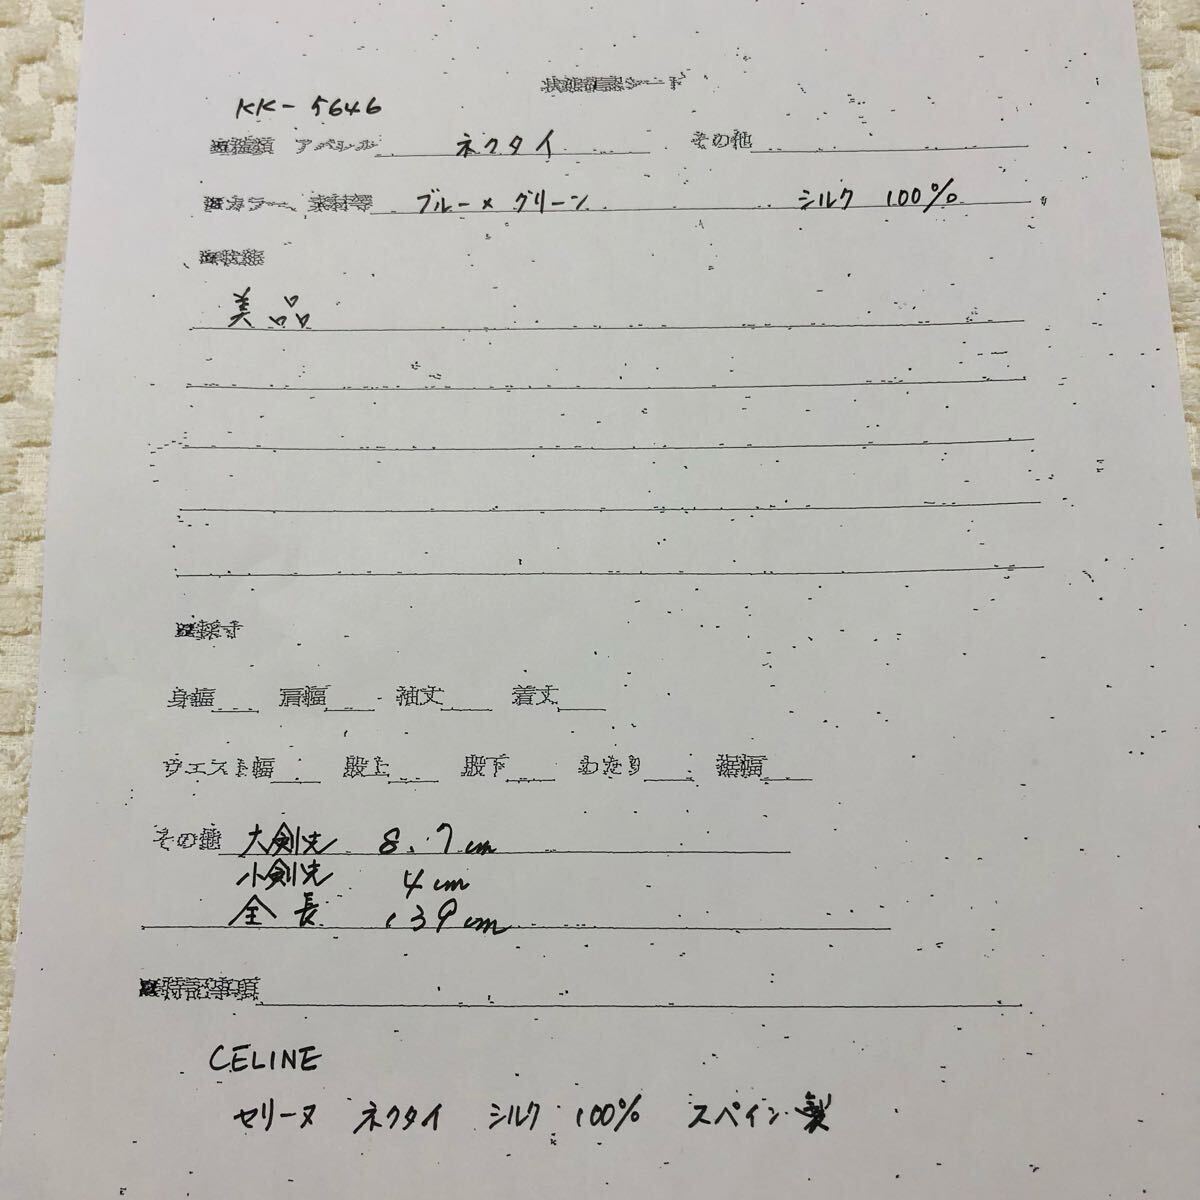 状態確認シート
KK-5646
■種類 アパレル ネクタイ その他
■カラー、素材等 ブルー×グリーン シルク 100%
■状態
美品
■採寸
身幅 肩幅 袖丈 着丈
ウエスト幅 股上 股下 わたり 裾幅
その他 大剣先 8.7cm
小剣先 4cm
全長 139cm
■特記事項
CELINE
セリーヌ ネクタイ シルク 100% スペイン製